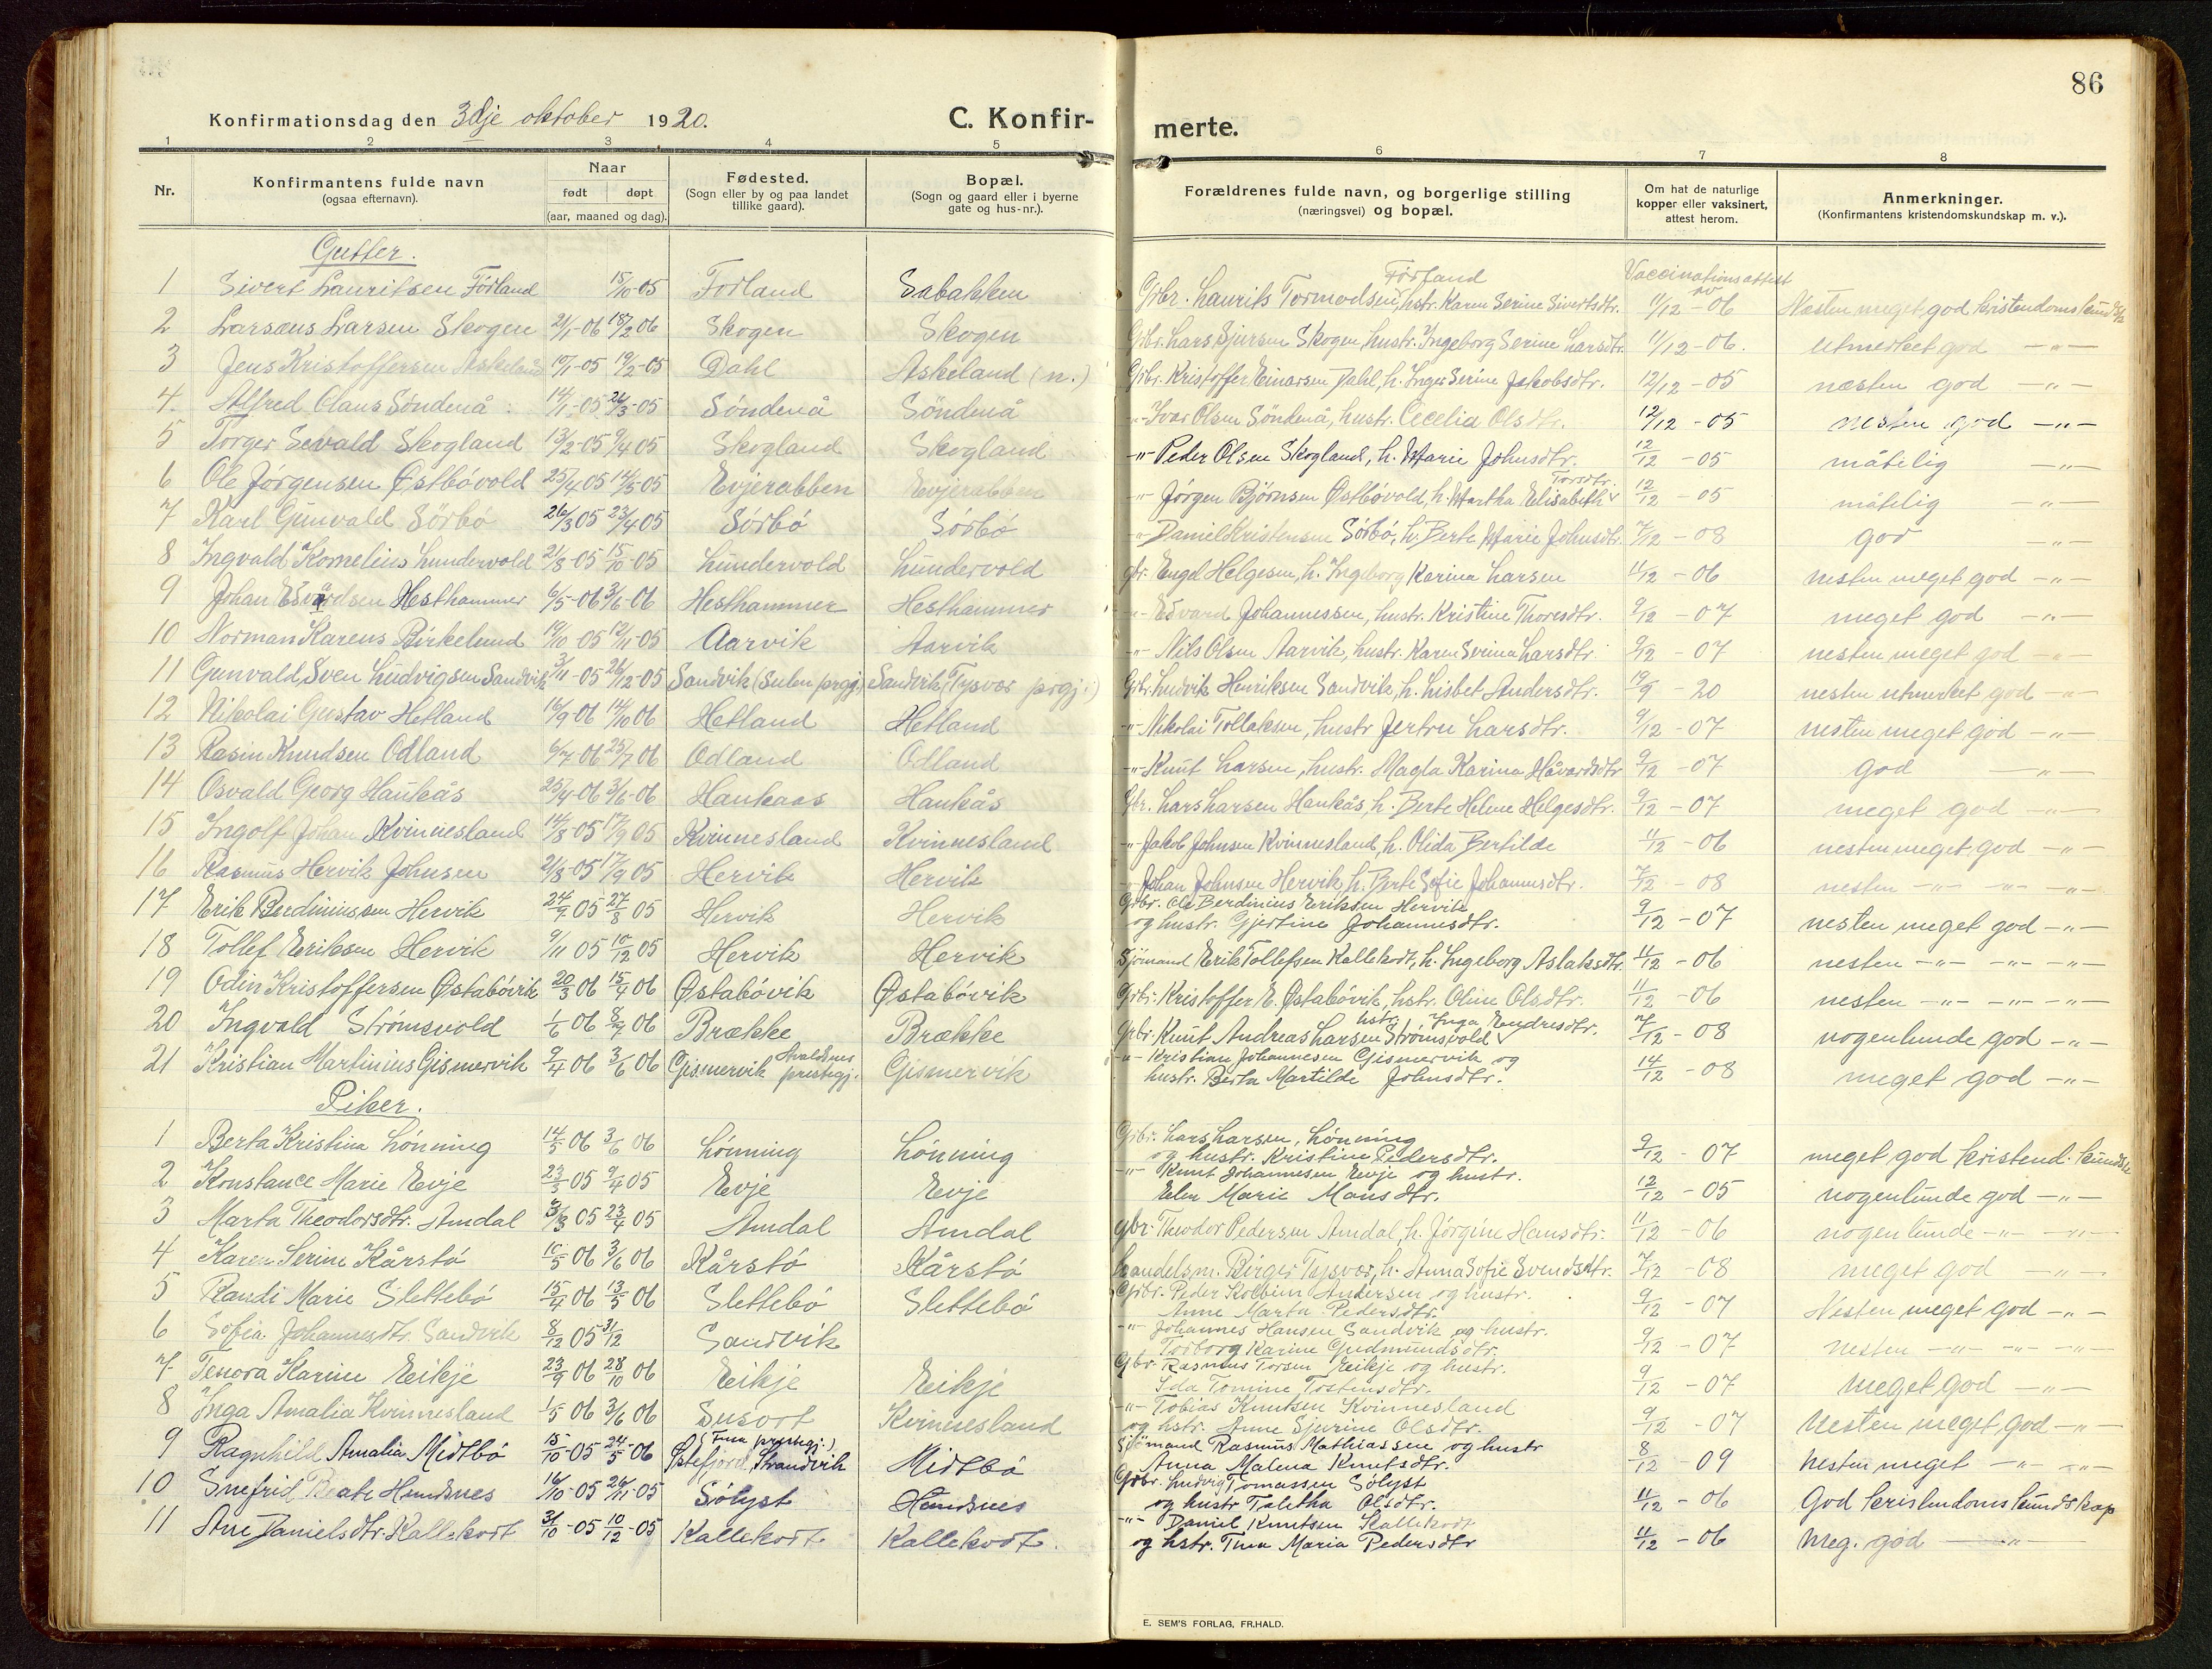 86
Konfirmationsdag den 3dje oktober 1920.
C. Konfir-
merte.
1 2 3 4 5 6 7 8
Nr.
Konfirmantens fulde navn
(ogsaa efternavn).
Naar
født døpt
(aar, maaned og dag).
Fødested.
(Sogn eller by og paa landet
tillike gaard).
Bopæl.
(Sogn og gaard eller i byerne
gate og hus-nr.).
Forældrenes fulde navn, og borgerlige stilling
(næringsvei) og bopæl.
Om hat de naturlige
kopper eller vaksinert,
attest herom.
Anmerkninger.
(Konfirmantens kristendomskundskap m. v.).
Gutter.
Vaccinationsattest
av
1 Sivert Lauritsen Førland 15/10-05 Førland Sabakken Grbr. Laurits Tormodsen Førland, hstr. Karen Serine Sivertsdtr. 11/12-06 Næsten meget god kristendomskundsk
2 Larsens Larsen Skogen 21/1-06 18/2 06 Skogen Skogen Grbr. Lars Sjursen Skogen, hustr. Ingeborg Serine Larsdtr. 11/12-06. utmerket god -"-
3 Jens Kristoffersen Askeland 10/1-05 19/2-05 Dahl Askeland (n.) Grbr. Kristoffer Einarsen Dahl, h. Inger Serine Jakobsdtr. 12/12-05 næsten god -"-
4. Alfred Claus Søndenå 14/1-05 26/3-05 Søndenå Söndenå -"- Ivar Olsen Söndenå, hustr. Cecelia Olsdtr. 12/12-05 nesten god -"-
5 Torger Sevald Skogland 13/2-05 9/4 05 Skogland Skogland -"- Peder Olsen Skogland, h. Marie Johnsdtr. 12/12-05 måtelig -"-
6 Ole Jørgensen Østbövold 25/4 05 14/5-05 Evjerabben Evjerabben -"- Jörgen Björnsen Östbövold, h. Martha Elisabeth Torsdtr. 12/12-05 måtelig "
7 Karl Gunvald Sörbö 26/3 05 23/4 05 Sörbö Sörbö -"- Daniel Kristensen Sörbö, h. Berte Marie Johnsdtr. 7/12-08 god -"-
8 Ingvald Kornelius Lundervold 21/8-05 15/10-05 Lundervold Lundervold gbr. Engel Helgesen, h. Ingeborg Karina Larsen 11/12-06 nesten meget god -"-
9 Johan Edvardsen Hesthammer 6/5-06 3/6-06 Hesthammer Hesthammer -"- Edvard Johannessen, hustr. Kristine Thoresdtr. 9/12-07 meget god -"-
10 Norman Karens Birkelund 19/10-05 12/11-05 Aarvik Aarvik -"- Nils Olsen Aarvik, hustr. Karen Serina Larsdtr. 9/12-07 nesten meget god -"-
11 Gunvald Sven Ludvigsen Sandvik 3/11-05 26/12-05 Sandvik (Sulen prgj.) Sandvik (Tysvær prgj.) Grbr. Ludvik Henriksen Sandvik, h. Lisbet Andersdtr. 19/9-20 nesten utmerket god -"-
12 Nikolai Gustav Hetland 16/9 06 14/10 06 Hetland Hetland -"- Nikolai Tollaksen, hustr Jertru Larsdtr. 9/12-07 nesten meget god -"-
13 Rasin Knudsen Odland 6/7-06 25/7 06 Odland Odland -"- Knut Larsen, hustr. Magla Karina Håvardsdtr 9/12-07 god -"-
14 Osvald Georg Haukås 25/4-06 3/6-06 Haukaas Haukås Gbr. Lars Larsen Haukås, h. Berte Helene Helgesdtr. 9/12-07 meget god -"-
15 Ingolf Johan Kvinnesland 14/8-05 17/9 05 Kvinnesland Kvinnesland -"- Jakob Johnsen Kvinnesland, h. Olida Bertilde 11/12-06 nesten meget god -"-
16 Rasmus Hervik Johnsen 2/8-05 17/9 05 Hervik Hervik -"- Johan Johnsen Hervik, h. Berte Sofie Johannesdtr. 7/12-08 nesten -"- -"- -"-
17 Erik Berdiniussen Hervik 24/7 05 27/8 05 Hervik Hervik Grbr. Ole Berdinius Eriksen Hervik
og hustr. Gjertine Johannesdtr. 9/12-07 nesten meget god -"-
18 Tollef Eriksen Hervik 9/11 05 10/12 05 Hervik Hervik Sjömand Erik Tollefsen Kallekodt, h. Ingeborg Aslaksdtr. 11/12-06 nesten -"- -"- -"-
19 Odin Kristoffersen Østabövik 20/3 06 15/4 06 Østabövik Østabövik Grbr. Kristoffer E. Østabövik, hstr. Oline Olsdtr. 11/12-06 nesten -"- -"- -"-
20 Ingvald Strømsvold 1/6 06 8/7 06 Brække Brække Grbr. Knut Andreas Larsen Strömsvold hstr. Inga Endresdtr. 7/12-08 nogenlunde god -"-
21 Kristian Martinius Gismervik 9/4 06 3/6 06 Gismervik Avaldsnes prestegj. Gismervik -"- Kristian Johannesen Gismervik og
hustr. Berta Martilde Johnsdtr. 14/12-08 meget god -"-
Piker.
1 Berta Kristina Lönning 14/5 06 3/6 06 Lönning Lönning Grbr. Lars Larsen, Lönning
og hustr. Kristine Pedersdtr. 9/12-07 meget god kristend. kundsk
2 Konstance Marie Evje 23/3 05 9/4 05 Evje Evje -"- Knut Johannesen Evje og hustr.
Elen Marie Mansdtr. 12/12-05 nogenlunde god -"-
3 Marta Theodorsdtr. Amdal 3/3 05 23/4 05 Amdal Amdal gbr. Theodor Pedersen Amdal, h. Jörgine Hansdtr. 11/12-06 nogenlunde -"- -"-
4 Karen Serine Kårstö 10/5 06 3/6 06 Kårstö Kårstö handelsm. Birger Tysvær, h. Anna Sofie Svendsdtr. 7/12-08 meget god -"-
5 Randi Marie Slettebö 15/4 06 13/5 06 Slettebö Slettebö Grbr. Peder Kolbein Andersen og hustr.
Anne Marta Pedersdtr. 9/12-07 Nesten meget god -"-
6 Sofia Johannesdtr. Sandvik 8/12 05 31/12 Sandvik -"- Johannes Hansen Sandvik og hustr.
Torborg Karine Gudmundsdtr. 9/12-07 nesten -"- -"- -"-
7 Tenora Karine Eikje 23/9 06 28/10 06 Eikje Eikje Gbr. Rasmus Torsen Eikje og hustr.
Ida Tomine Tostensdtr. 9/12-07 meget god -"-
8 Inga Amalia Kvinnesland 1/5 06 3/6 06 Susort Kvinnesland -"- Tobias Knutsen Kvinnesland
og hstr. Anne Sjurine Olsdtr. 9/12-07 Nesten meget god -"-
9 Ragnhild Amalia Midtbö 15/10-05 24/5-06 (Fusa prestegj.) Østefjord, Strandvik Midtbö Sjömand Rasmus Mathiassen og hustr
Anna Malena Knutsdtr. 8/12-09 Nesten meget -"- -"-
10 Snefrid Beate Hundsnes 16/10-05 26/11-05 Sölyst Hundsnes Grbr. Ludvig Tomassen Sölyst
og hustr Talitha Olsdtr. 11/12-06 God kristendomskundskap
11 Ane Danielsdtr. Kallekodt 31/10-05 10/12-05 Kallekodt Kallekodt. -"- Daniel Knutsen Kallekodt
og hstr. Thea Maria Pedersdtr 11/12-06 Meg. god -"-
E. SEM'S FORLAG, FR.HALD.